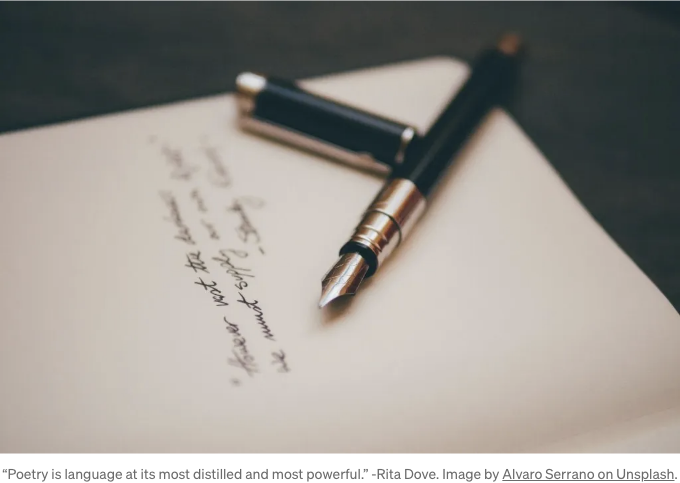 "However vast the darkness
we must supply our own
- Stanley
“Poetry is language at its most distilled and most powerful.” -Rita Dove. Image by Alvaro Serrano on Unsplash.